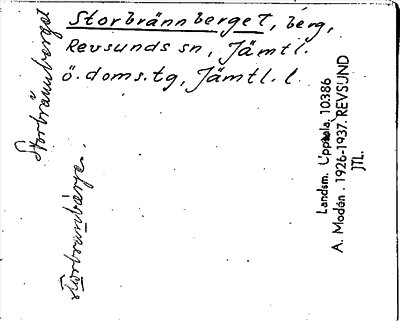 Storbrännberget, berg,
Revsunds sn, Jämtl.
ö. doms.tg, Jämtl. l
Storbrännberget
Landsm. Uppsala 10386
A. Modén. 1926-1937. REVSUND
JTL.